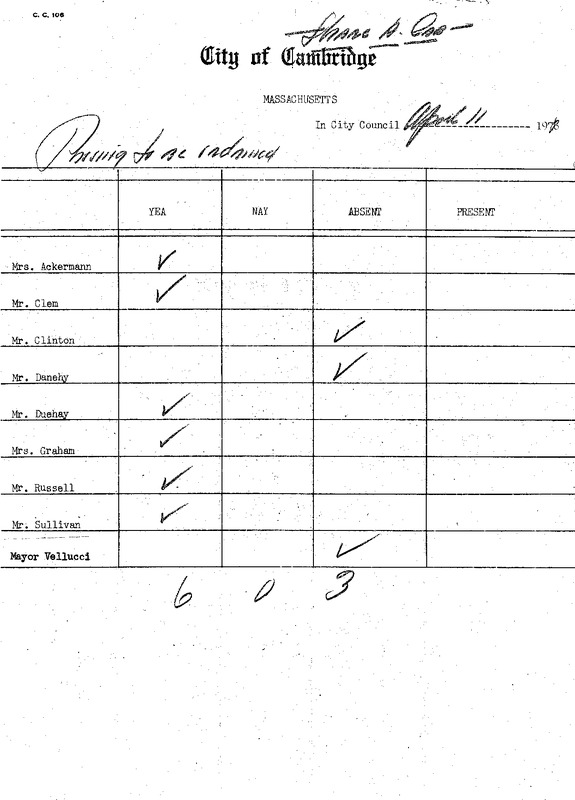 C. C. 106
Share A. Cab
City of Cambridge
MASSACHUSETTS
In City Council April 11 1978
Passing to be ordained
YEA NAY ABSENT PRESENT
Mrs. Ackermann ✓
Mr. Clem ✓
Mr. Clinton ✓
Mr. Danehy ✓
Mr. Duehay ✓
Mrs. Graham ✓
Mr. Russell ✓
Mr. Sullivan ✓
Mayor Vellucci ✓
6 0 3